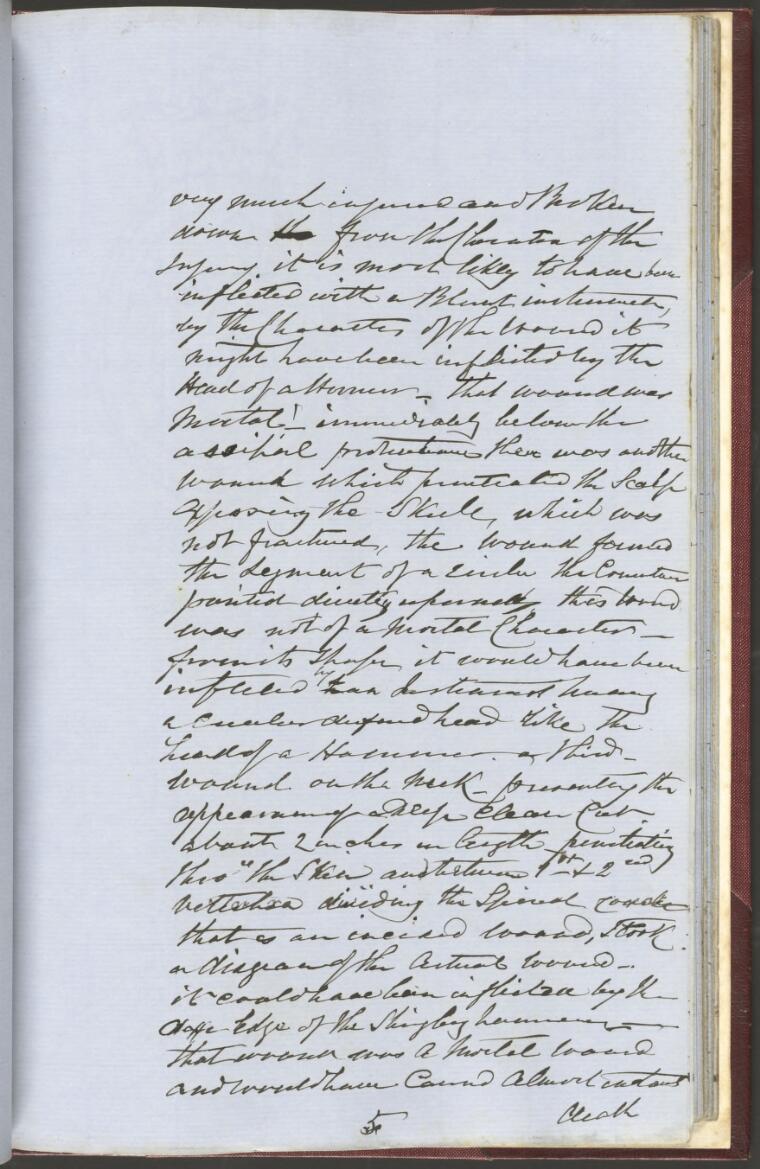 very much injured and Broken
down from the Character of the
Injury it is most likely to have been
inflicted with a Blunt instrument,
by the Character of the Wound it
might have been inflicted by the
Head of a Hammer – that wound was
Mortal! – immediately below the
occipital protuberance there was another
wound which penetrated the Scalp
exposing the Skull, which was
not fractured, the wound formed
the segment of a Circle the Convexity
pointed directly upwards this wound
was not of a Mortal Character –
from its Shape it would have been
inflicted by an Instrument having
a circular head like the
head of a Hammer. a third –
wound on the Neck – presenting the
appearance of a Deep Clean Cut
about 2 inches in length penetrating
thro" the Skin and between 1st & 2nd
vertebra dividing the Spinal
that is an incised wound, I took
a diagram of the Actual wound –
it could have been inflicted by the
Edge of the Shingling hammer –
that wound was a Mortal wound
and would have Caused Almost instant
death
5